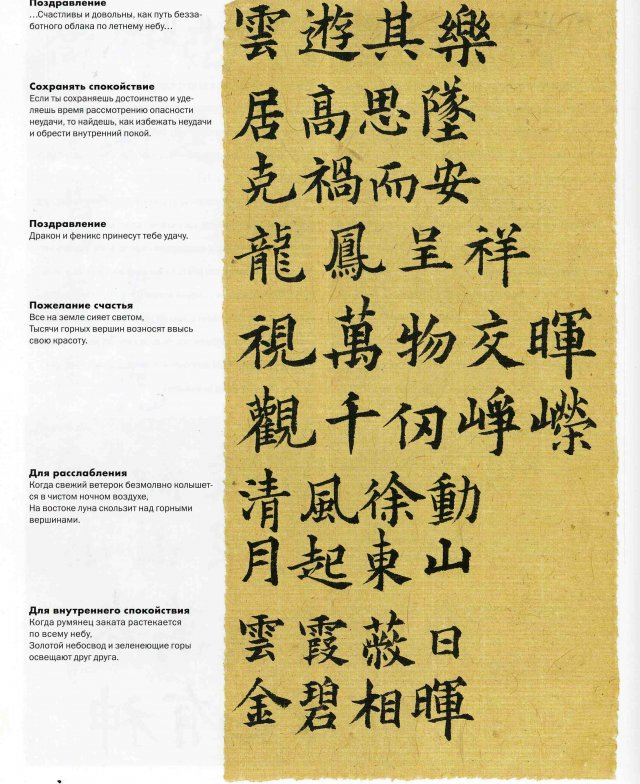 Поздравление
…Счастливы и довольны, как путь безза-
ботного облака по летнему небу…
雲遊其樂
Сохранять спокойствие
Если ты сохраняешь достоинство и уде-
ляешь время рассмотрению опасности
неудачи, то найдешь, как избежать неудачи
и обрести внутренний покой.
居高思墜
克禍而安
Поздравление
Дракон и феникс принесут тебе удачу.
龍鳳呈祥
Пожелание счастья
Все на земле сияет светом,
Тысячи горных вершин возносят ввысь
свою красоту.
視萬物交暉
觀千仞崢嶸
Для расслабления
Когда свежий ветерок безмолвно колышет-
ся в чистом ночном воздухе,
На востоке луна скользит над горными
вершинами.
清風徐動
月起東山
Для внутреннего спокойствия
Когда румянец заката растекается
по всему небу,
Золотой небосвод и зеленеющие горы
освещают друг друга.
雲霞蔽日
金碧相暉